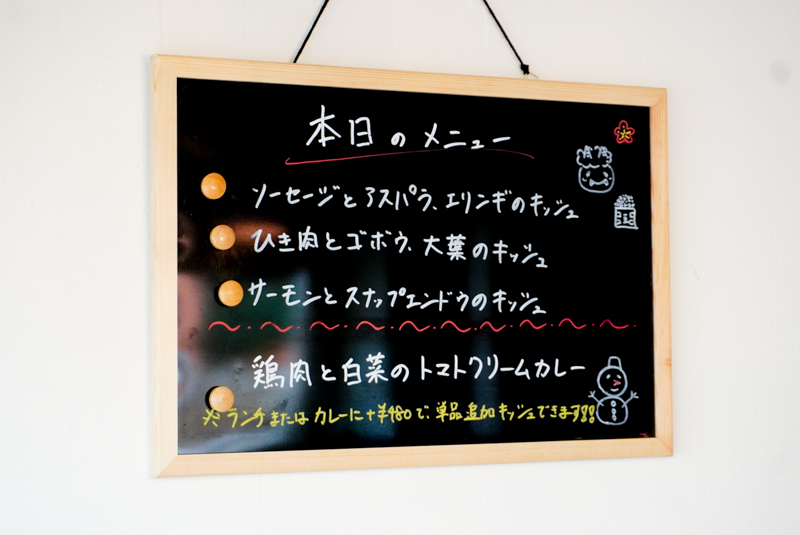 本日のメニュー
ソーセージとアスパラ、エリンギのキッシュ
ひき肉とゴボウ、大葉のキッシュ
サーモンとスナップエンドウのキッシュ
鶏肉と白菜のトマトクリームカレー
※ランチまたはカレーに+¥480で、単品追加キッシュできます!!